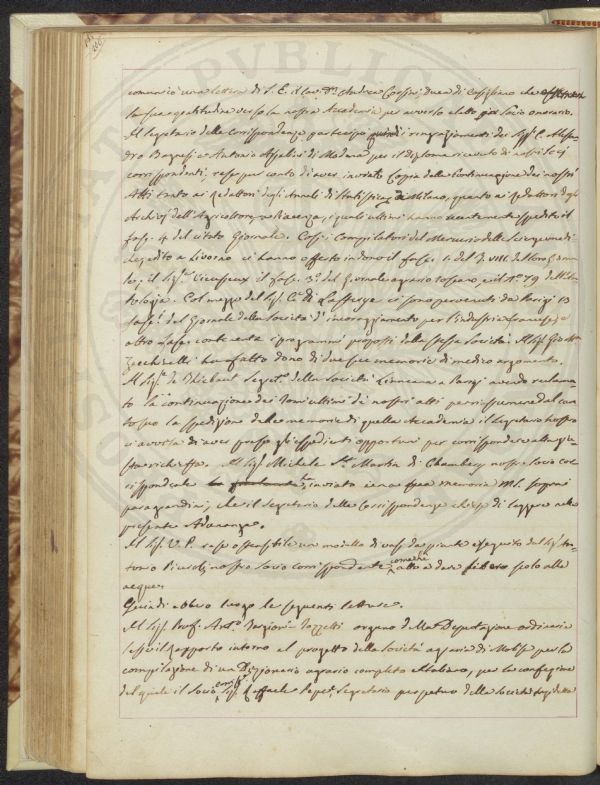 comunicò una lettera di S. E. il Cav. Dn. Andrea Corsini, Duca di Casigliano che
la sua gratitudine verso la nostra Accademia per averlo eletto suo Socio onorario.
Il Segretario delle Corrispondenze partecipò quindi i ringraziamenti dei Sigg. C. Alessan-
dro Bagnesi e Antonio di Modena per il Diploma ricevuto di nostri Socj
corrispondenti, rese pur conto di aver inviato Copia della Continuazione dei nostri
Atti tanto ai Redattori degli Annali di Statistica di Milano, quanto ai Redattori degli
Archivj dell'Agricoltore Piacenza, i quali ultimi hanno spedito il
fasc. 4 del citato Giornale. Così i Compilatori del Mercurio delle Scienze medi-
che edito a Livorno ci hanno offerto in dono il fasc. 1. del T. VIII. del loro Giorna-
le, e il Sigr. Vieusseux il fasc. 3º del Giornale agrario toscano, e il Nº 79 dell'An-
tologia. Col mezzo del Sigr. Ce. di Lasteyrie ci sono pervenuti da Parigi 13
fasci. del Giornale della Società d'incoraggiamento per l'industria francese, e
altro fasc. contenente i programmi proposti dalla stessa Società. Il Sigr. Gio. Bta.
Zecchinelli ha fatto dono di due sue memorie di medico argomento.
Il Sigr. de Thiebaut Segret. della Società Linneana a Parigi avendo reclama-
to la continuazione dei Tomi ultimi de' nostri atti per riassumere dal can-
to suo la spedizione delle memorie di quella Accademia il Segretario nostro
ci avvertì di aver preso gli espedienti opportuni per corrispondere alla giu-
sta richiesta. Il Sigr. Michele St. Martin di Chambery nostro Socio cor-
rispondente ha inviato una sua memoria MS. sopra i
paragrandini, che il Segretario delle Corrispondenze chiese di leggere nella
presente Adunanza.
Il Sigr. V. P. rese ostensibile un modello di vaso da piante eseguito dal Sigr. An-
tonio Piccioli nostro Socio corrispondente comechè atto a dare libero scolo alle
acque.
Quindi ebbero luogo le seguenti letture.
Il Sigr. Prof. Antº. Targioni Tozzetti organo della Deputazione ordinaria
lesse il Rapporto intorno al progetto della Società agraria di Molise per la
compilazione di un Dizionario agrario completo Italiano, per la confezione
del quale il Socio corrispte. Sigr. Raffaele Pepe, Segretario perpetuo della Società suddetta